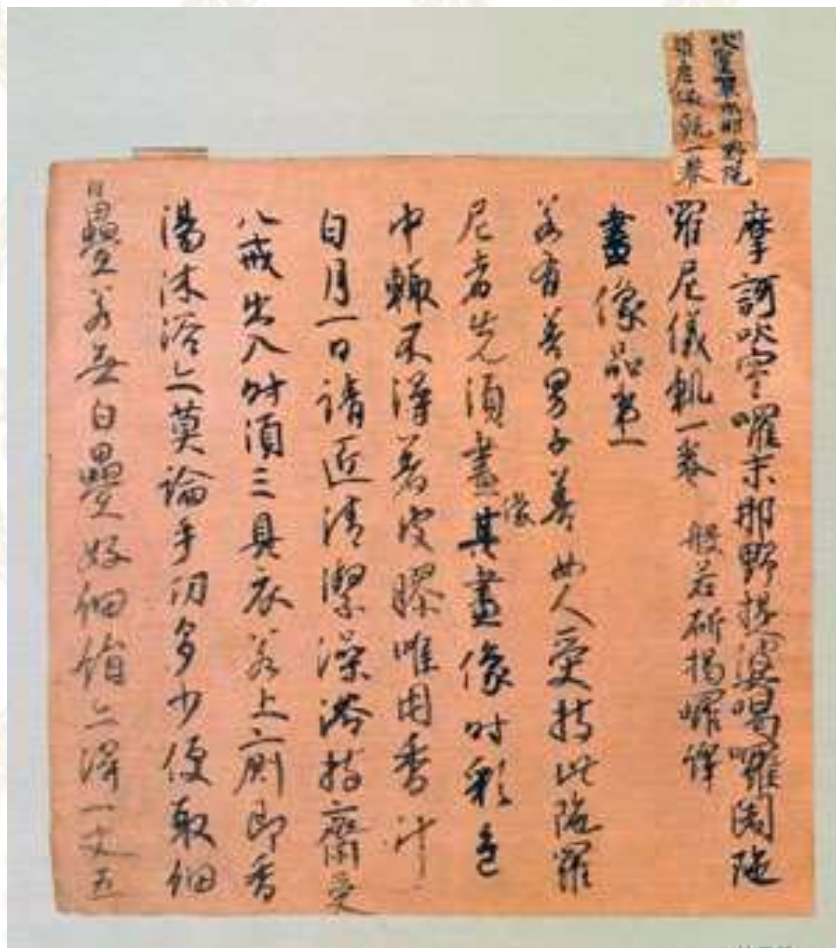 吠室囉末那野陀
羅尼儀軌一卷
摩訶吠室囉末那野提婆喝囉闍陁
羅尼儀軌一卷 般若斫揭囉譯
畫像品第一
若有善男子善女人受持此陁羅
尼者先須畫像其畫像時彩色
中輙不得著皮膠唯用香汁
白月一日請匠清潔澡浴持齋受
八戒出入時須三具衣若上廁即香
湯沐浴亦莫論手功多少便取細
白㲲若無白㲲好細絹亦得一丈五